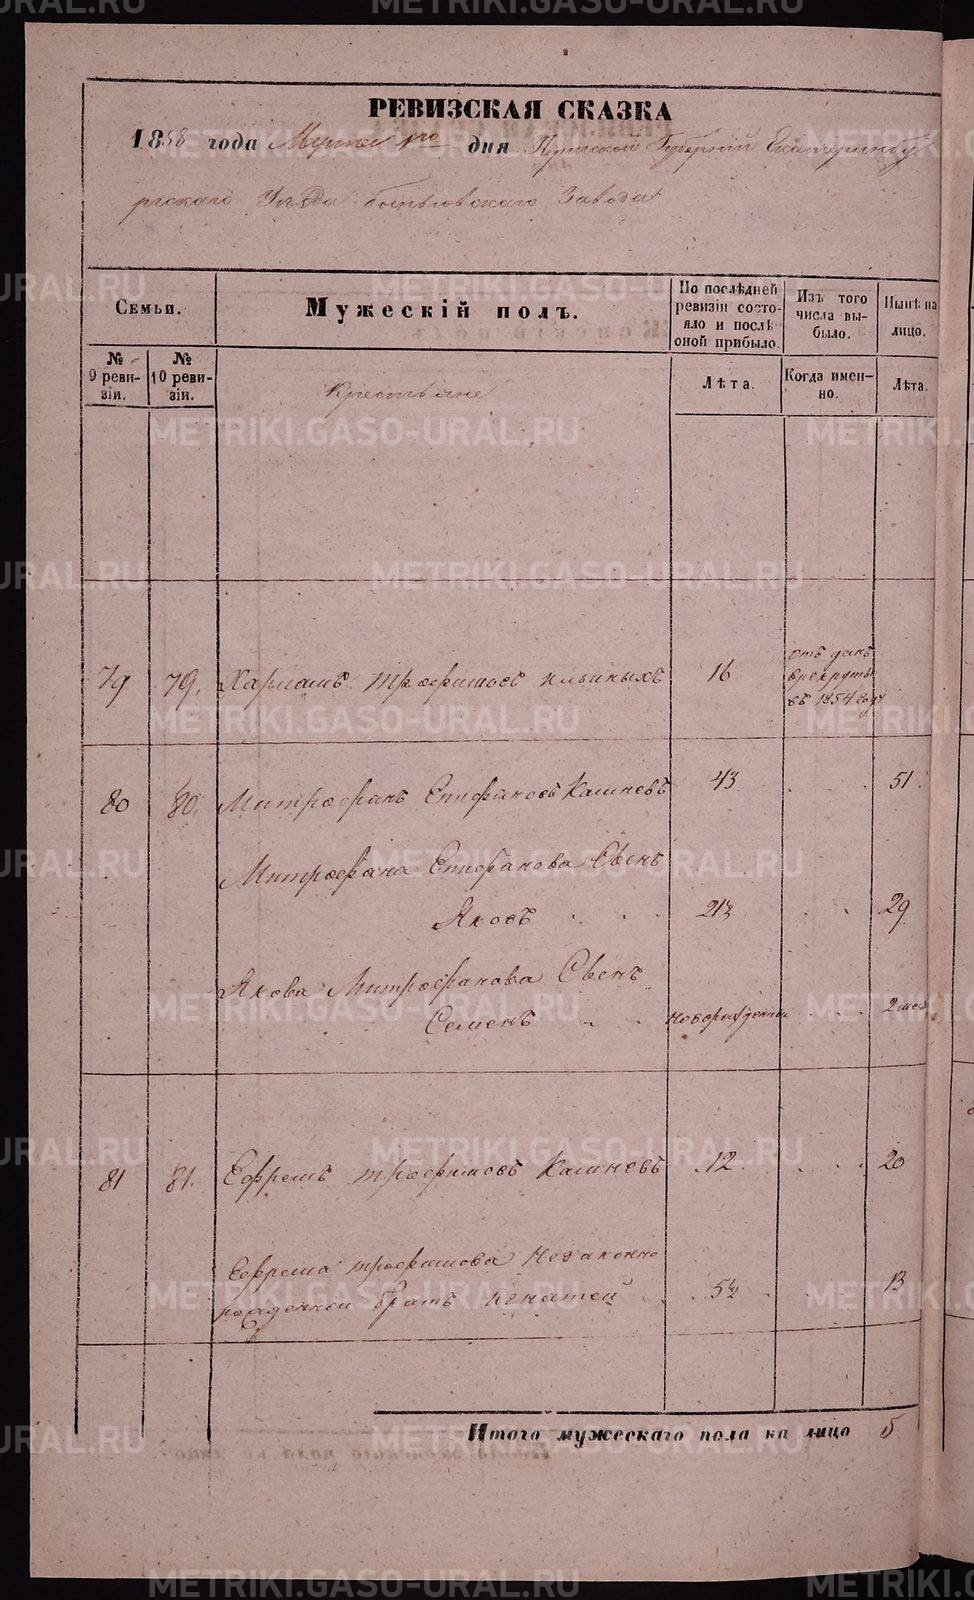 РЕВИЗСКАЯ СКАЗКА
1858 года Марта 1го дня Пермской Губерній Екатеринбу
ргскаго Уѣзда Заводa
Семьи.
Мужескій полъ.
По послѣдней ревизіи состояло и послѣ оной прибыло.
Изъ того числа выбыло.
Нынѣ на лицо.
№ 9 ревизіи.
№ 10 ревизіи.
Крестьяне
Лѣта.
Когда именно.
Лѣта.
79 79. Харламъ Трофимовъ 16
отъ данъ
в рекруты
въ 1854 году
80 80. Митрофанъ Епифановъ Калиневъ 43 51.
Митрофана Епифанова Сынъ
Яковъ 21½ 29
Якова Митрофанова Сынъ
Семенъ новорожденный 2 мес
81 81. Ефремъ Трофимовъ Калиневъ 12 20
Ефрема Трофимова Незаконно
рожденной братъ Игнатей 5½ 13
Итого мужескаго пола на лицо 5
METRIKI.GASO-URAL.RU